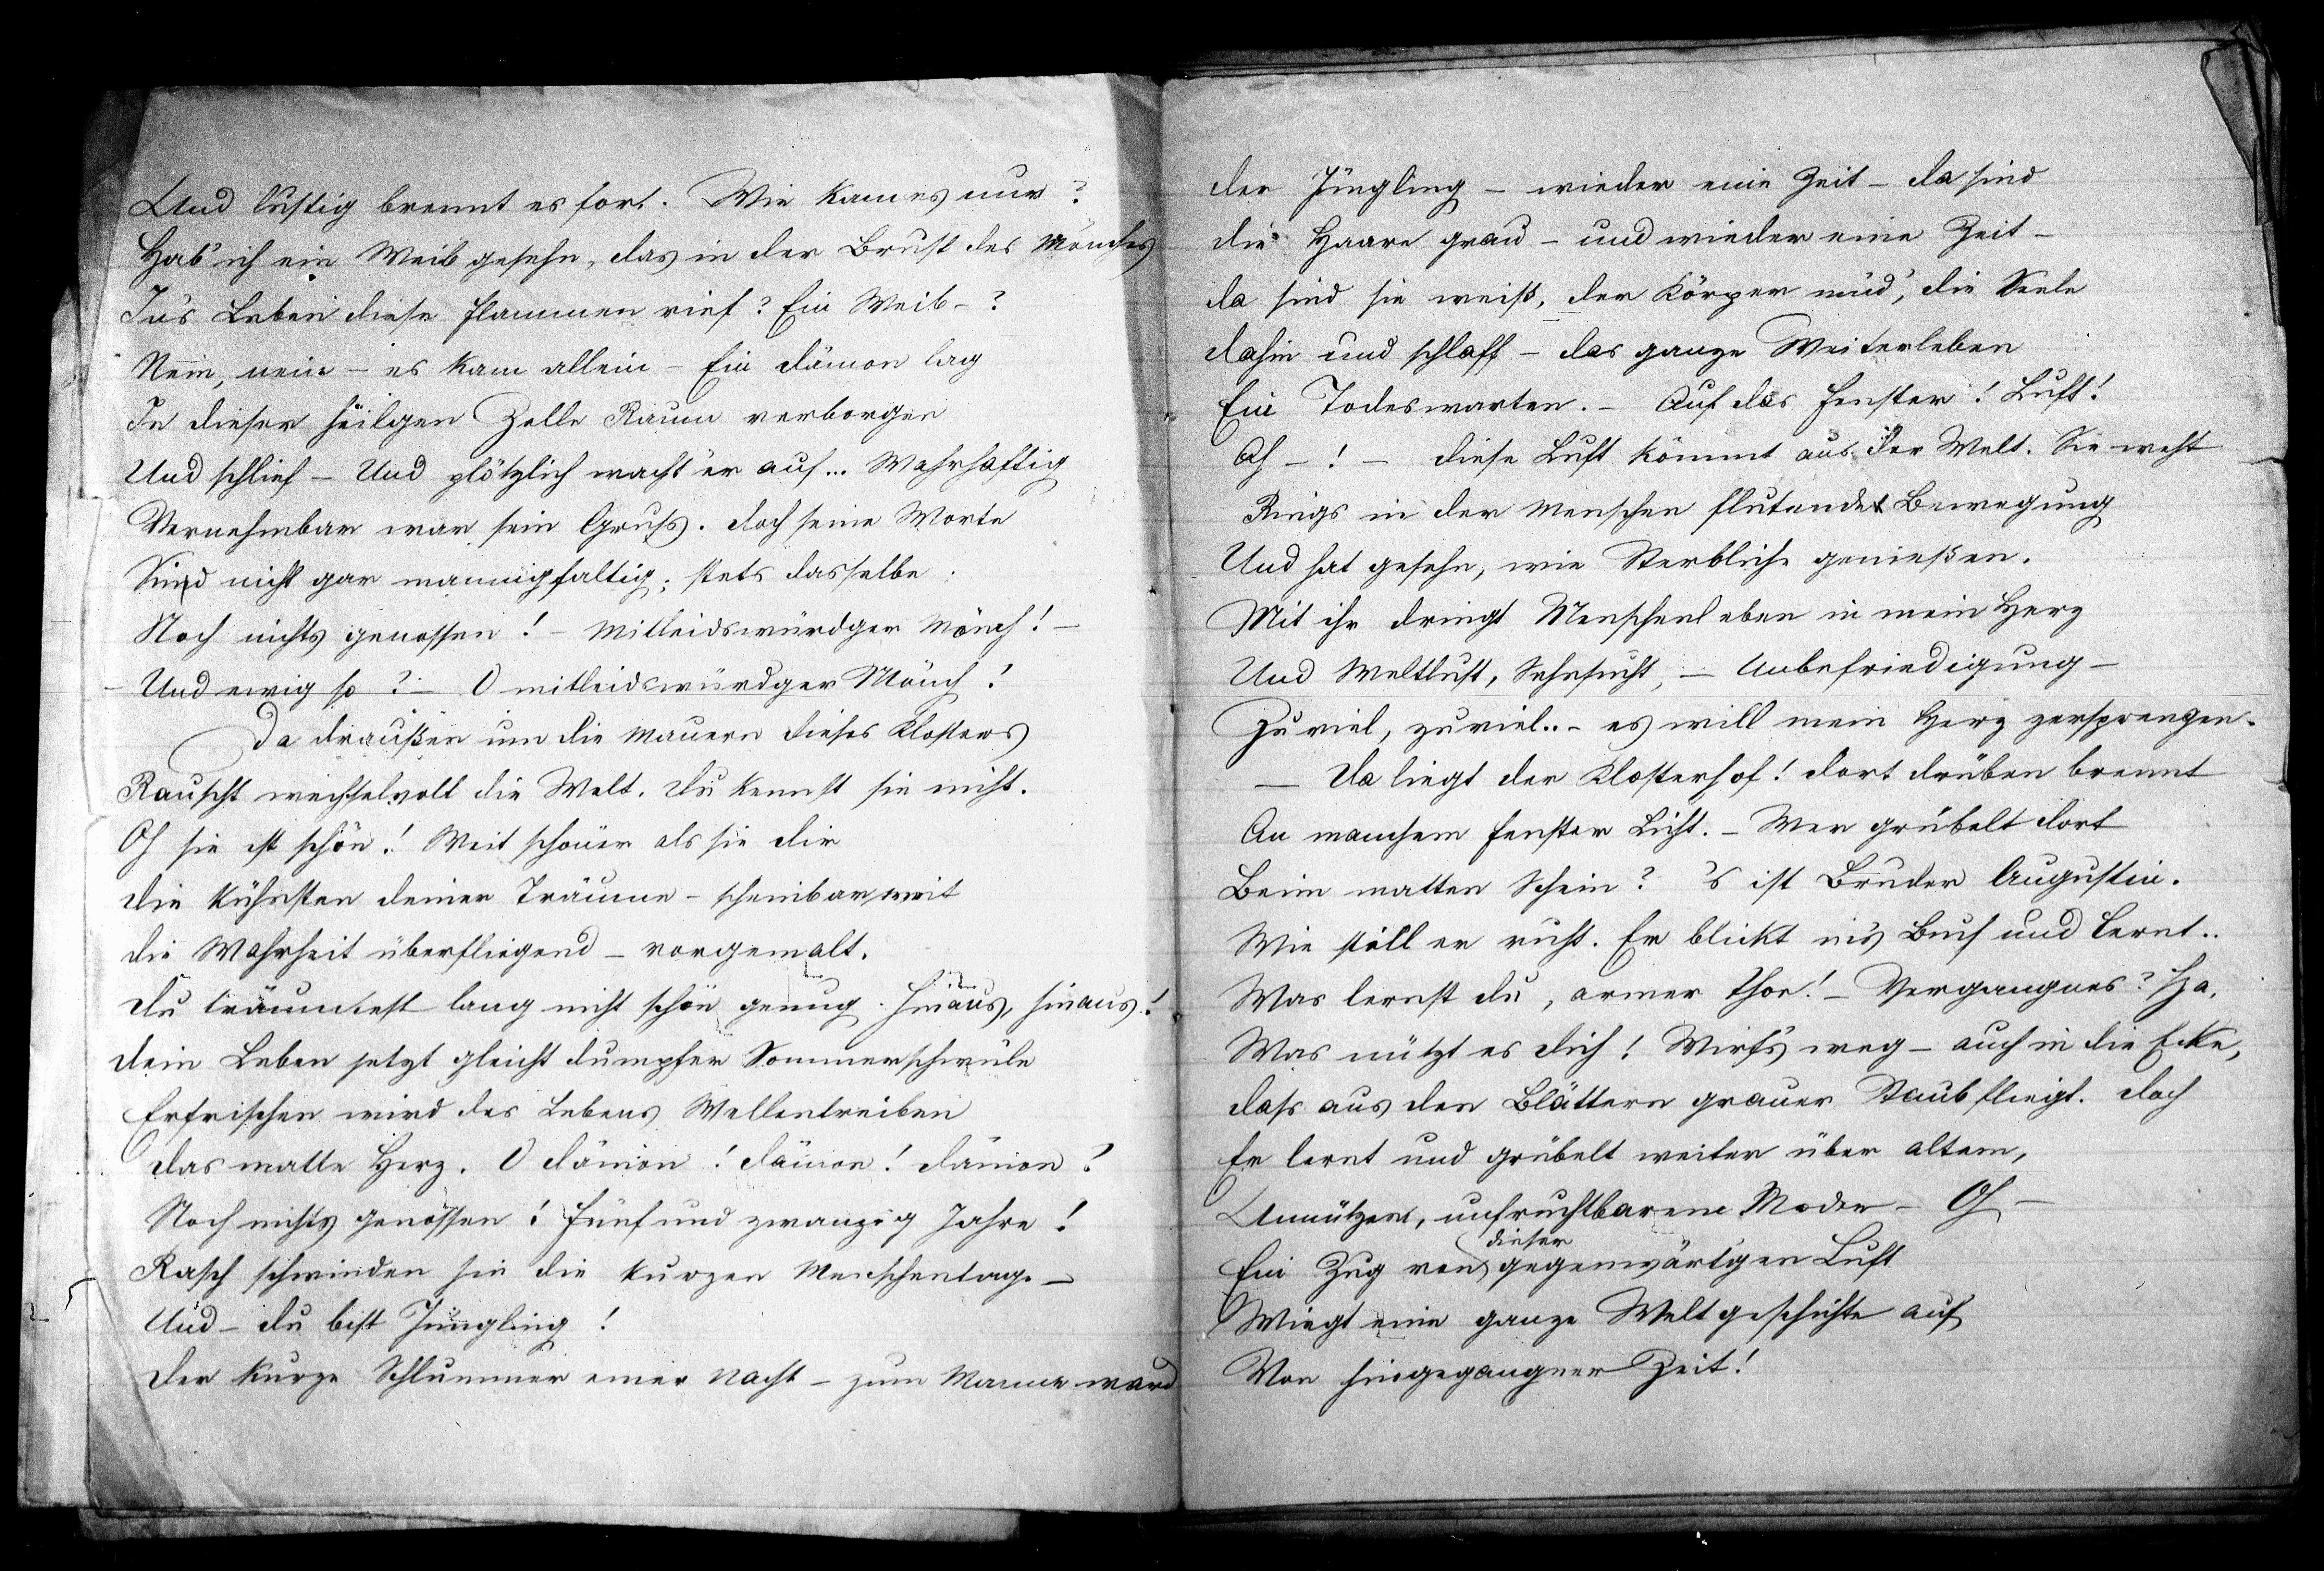 Und lustig brennt es fort. Wie kam es nur?
Hab' ich ein Weib gesehn, das in der Brust des Mönches
In's Leben diese Flammen rief? Ein Weib-?
Nein, nein - es kam allein - Ein Dämon lag
In dieser heilgen Zelle Raum verborgen
Und schlief - Und plötzlich wacht er auf... Wahrhaftig
Vernehmbar war sein Gruß. Doch seine Worte
Sind nicht gar mannigfaltig; stets dasselbe:
Noch nichts genossen! - Mitleidswürdger Mönch! -
- Und ewig so? - O mitleidswürdger Mönch!
Da draußen um die Mauern dieses Klosters
Rauscht wechselvoll die Welt. Du kennst sie nicht.
Oh sie ist schön! Weit schöner als sie dir
Die kühnsten deiner Träume - scheinbar weit
Die Wahrheit überfliegend - vorgemalt.
Du träumtest lang nicht schön genug. Hinaus, hinaus!
Dein Leben jetzt gleicht dumpfer Sommerschwüle
Erfrischen wird des Lebens Wellentreiben
Das matte Herz. O Dämon! Dämon! Dämon!
Noch nichts genossen! Fünf und zwanzig Jahre!
Rasch schwinden hin die kurzen Menschentage -
Und - du bist Jüngling!
Der kurze Schlummer einer Nacht - zum Manne ward
der Jüngling - wieder eine Zeit - da sind
die Haare grau - und wieder eine Zeit -
da sind sie weiß, der Körper müd', die Seele
dahin und schlaff - das ganze Weiterleben
Ein Todeswarten. - Auf das Fenster! Luft!
Ah -! - diese Luft kömmt aus der Welt. Sie weht
Rings in der Menschen flutende Bewegung
Und hat gesehn, wie Sterbliche genießen.
Mit ihr dringt Menschenleben in mein Herz
Und Weltlust, Sehnsucht, - Unbefriedigung -
Zu viel, zu viel.. - es will mein Herz zersprengen.
- Da liegt der Klosterhof! Dort drüben brennt
An manchem Fenster Licht. - Wer grübelt dort
Beim matten Schein? 's ist Bruder Augustin.
Wie still er ruht. Er blickt in's Buch und lernt..
Was lernst du, armer Thor! - Vergangnes? Ha,
Was nützt es dich! Wirf's weg - auch in die Ecke,
dass aus den Blättern grauer Staub fliegt. Doch
Er lernt und grübelt weiter über altem,
Unnützem, unfruchtbarem Moder - Oh -
dieser
Ein Zug von gegenwärt'gen Luft
Wiegt eine ganze Weltgeschichte auf
Von hingegangner Zeit!